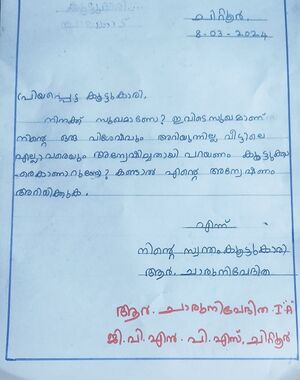 ചിറ്റൂർ.
8-03-2024
പ്രിയപ്പെട്ട കൂട്ടുകാരി,
നിനക്ക് സുഖമാണോ? ഇവിടെ സുഖമാണ്
നിന്റെ ഒരു വിശേഷവും അറിയുന്നില്ല. വീട്ടിലെ
എല്ലാവരെയും അന്വേഷിച്ചതായി പറയണം കൂട്ടുക്കാ
-രെകാണാറുണ്ടോ? കണ്ടാൽ എന്റെ അന്വേഷണം
അറിയിക്കുക.
എന്ന്
നിന്റെ സ്വന്തം കൂട്ടുകാരി
ആർ. ചാരുനിവേദിത
ആർ. ചാരുനിവേദിത. I A
ജി. വി. എൽ. പി. എസ്, ചിറ്റൂർ